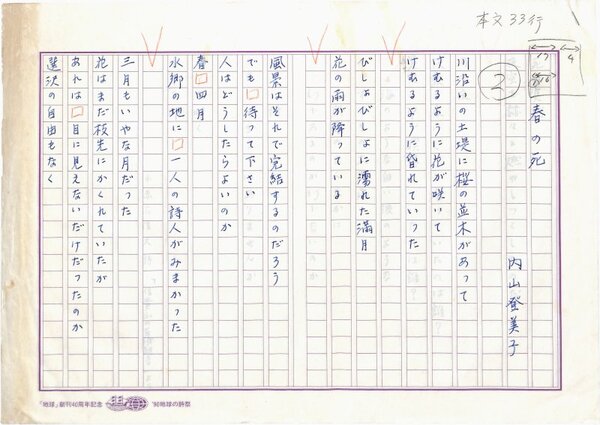 本文33行
②
春の死
内山登美子
川沿いの土堤に桜の並木があって
けむるように花が咲いて
けむるように昏れていった
びしょびしょに濡れた満月
花の雨が降っている
風景はそれで完結するのだろう
でも□待って下さい
人はどうしたらよいのか
春□四月
水郷の地に□一人の詩人がみまかった
三月もいやな月だった
花はまだ枝先にかくれていたが
あれは□目に見えないだけだったのか
選択の自由もなく
「地球」創刊40周年記念 '90地球の詩祭